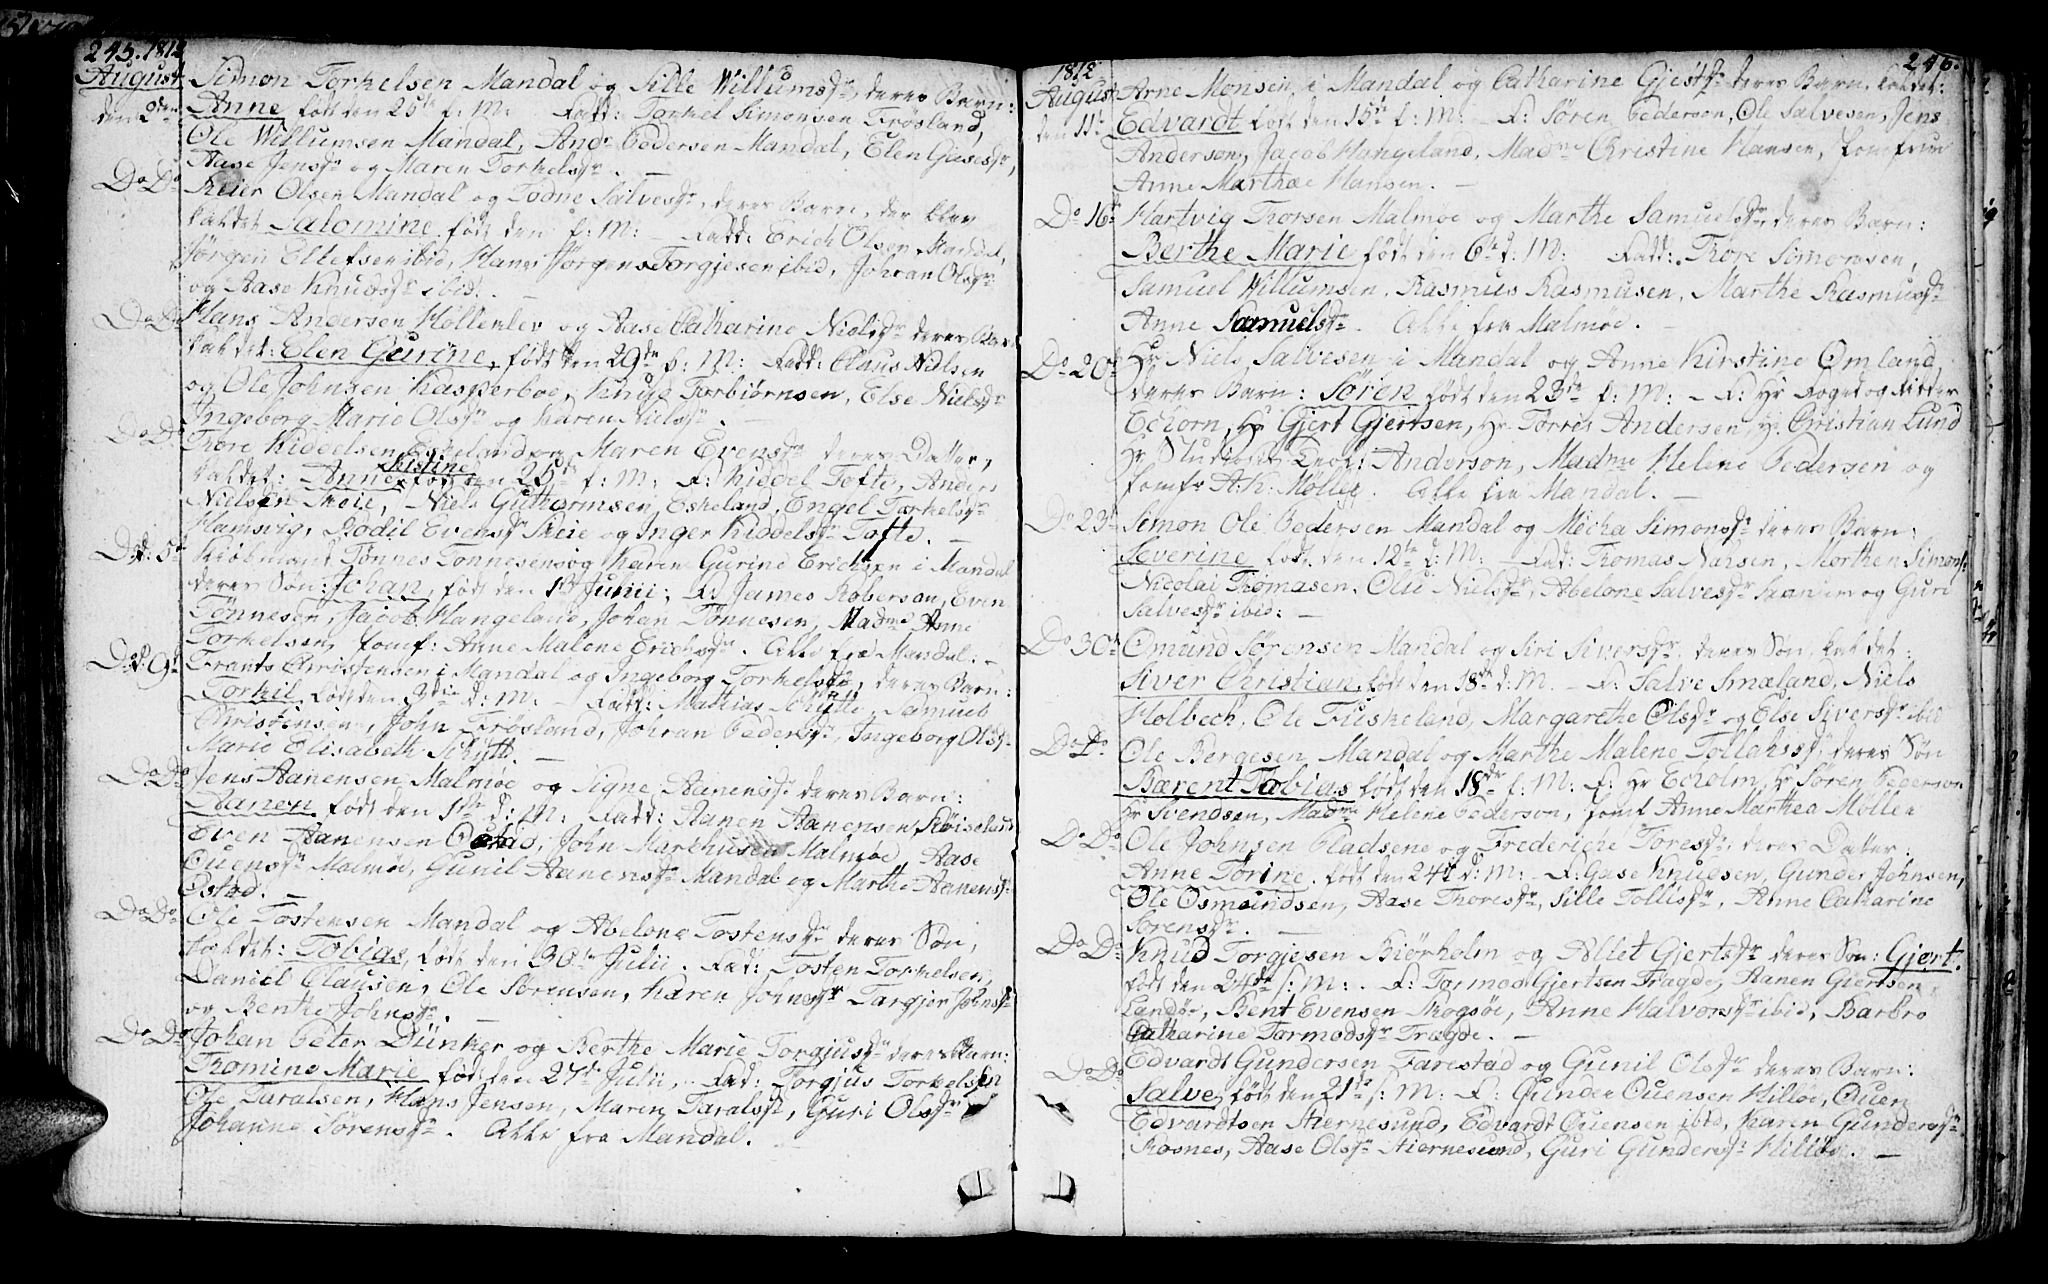 245. 1812
August Simon Torkelsen Mandal og Sille Willumsdr, deres Barn:
den 2den Anne født den 25te f: M: Fadd: Torkel Simonsen Frøsland,
Ole Willumsen Mandal, And: Pedersen Mandal, Elen Gjesesdr,
Aase Jensdr og Maren Torkelsdr. –
Do Do Reier Olsen Mandal og Todne Salvesdr, deres Barn, der blev
kaldet Salomine født den f: M: – Fadd: Erich Olsen Mandal,
Jørgen Ellefsen ibid, Hans Jørgens Torgjesen ibid, Johran Olsdr
og Aase Knudsdr ibid. –
Do Do Hans Andersen Høllenlev og Aase Catharine Nielsdr deres Barn
kaldet: Elen Gurine, født den 29de f: M: Fadd: Claus Nielsen
og Ole Johnsen Kasperboe, Knud Torbiørnsen, Else Nielsdr
Ingeborg Marie Olsdr og Karen Nielsdr. –
Do Do Tore Kiddelsen Eskeland og Maren Evensdr deres Datter,
Kistine
kaldet: Anne født den 25de f: M: F: Kiddel Tofte, Anders
Nielsen Skeie, Niels Guthormsen, Eskeland, Engel Torkelsdr
Hamsvig, Bodil Evensdr Skeie og Inger Kiddelsdr Tofte. –
Do d: 5te Kiøbmand Tønnes Tønnesen og Karen Gurine Erichsen i Mandal
deres Søn: Johan, født den 13 Junii; F: James Roberson, Even
Tønnesen, Jacob Hangeland, Johan Tønnesen, Madme Anne
Torkelsen, Jomf: Anne Malene Erichsdr. Alle fra Mandal: –
Do d: 9te Frants Christensen i Mandal og Ingeborg Torkelsdr, deres Barn:
Torkil født den 3die d: M: – Fadd: Mathias Schytte, Samuel
Christensen, John Frøsland, Johran Pedersdr, Ingeborg Olsdr
Marie Elisabeth Schytt. –
Do Do Jens Aanensen Malmøe og Signe Aanensdr deres Barn:
Aanen født den 1ste d: M: Fadd: Aanen Aanensen Røiseland
Even Aanensen Østad, John Markhusen Malmøe, Aase
Ouensdr Malmøe, Gunil Aanensdr Mandal og Marthe Aanensdr
Østad. –
Do Do Ole Tostensen Mandal og Abelone Tostensdr deres Søn,
kaldet: Tobias, født den 30te Julii. Fad: Tosten Torkelsen,
Daniel Clausen, Ole Sørensen, Karen Johnsdr Targjer Johnsdr
og Benthe Johnsdr. –
Do Do Johan Peter Dünker og Berthe Marie Torgjusdr deres Barn:
Tomine Marie født den 27de Julii, – Fad: Torgjus Torkelsen
Ole Taralsen, Hans Jensen, Maren Taralsdr, Guri Olsdr
Johanne Sørensdr. Alle fra Mandal.
1812 246.
August Arne Monsen i Mandal og Catharine Gjestdr deres Barn, kaldet:
den 11te Edvardt født den 15de f: M: – F: Søren Pedersen, Ole Salvesen, Jens
Andersen, Jacob Hangeland, Madme Christine Hansen, Jomfrue
Anne Marthæ Hansen. –
Do 16de Hartvig Thorsen Malmøe og Marthe Samuelsdr deres Barn:
Berthe Marie født den 6te d: M: Fadd: Thore Simonsen,
Samuel Willumsen, Rasmus Rasmusen, Marthe Rasmusdr
Anne Samuelsdr. Alle fra Malmøe. –
Do 20de Hr Niels Salvesen i Mandal og Anne Kirstine Omland,
deres Barn: Søren født den 23de f: M: – F: Hr Foged og Ritter
Echorn, Hr Gjert Gjertsen, Hr Tørris Andersen, Hr Christian Lund
Hr Studios: Theol: Anderson, Madme Helene Pedersen og
Jomfr A: K: Møller. Alle fra Mandal. –
Do 23de Simon Ole Pedersen Mandal og Mecha Simonsdr deres Barn:
Severine født den 12te d: M: – Fad: Thomas Narsen, Morthen Simons:
Nicolai Thomasen, Oliv Nielsdr, Abelone Salvesdr og Guri
Salvesdr ibid: –
Do 30te Omund Sørensen Mandal og Siri Siversdr, deres Søn, kaldet:
Siver Christian, født den 18de d: M. – F: Salve Smæland, Niels
Holbech, Ole Fuskeland, Margarethe Olsdr og Else Siversdr ibid
Do Do Ole Bergesen Mandal og Marthe Malene Tollahsdr, deres Søn
Bærent Tobias født den 18de f: M: F: Hr Echolm, Hr Søren Pederson
Hr Svendsen, Madme Helene Pederson, Jomf Anne Marthea Møller
Do Do Ole Johnsen Pladsene og Frederiche Toresdr, deres Datter:
Anne Torine, født den 24de d: M: – F: Gase Knudsen, Gunder Johnsen,
Ole Osmundsen, Aase Thoresdr, Sille Tollisdr, Anne Catharine
Sørensdr. –
Do Do Knud Torgjesen Biørholm og Allet Gjertsdr deres Søn: Gjert.
født den 24de f: M: . F: Tormod Gjertsen Tragde, Aanen Giertsen
Landøe, Bent Evensen Skogsøe, Anne Halvorsdr ibid, Barbro
Catharine Tormodsdr Trægde. –
Do Do Edvardt Gundersen Farestad og Gunil Olsdr deres Barn:
Salve, født den 21de f: M: F: Gunder Ouensen Hilløe, Ouen
Edvardtsen Stiernesund, Edvardt Ouensen ibid, Karen Gundersdr
Rosnes, Aase Olsdr Stiernesund, Guri Gundersdr Hilløe. –